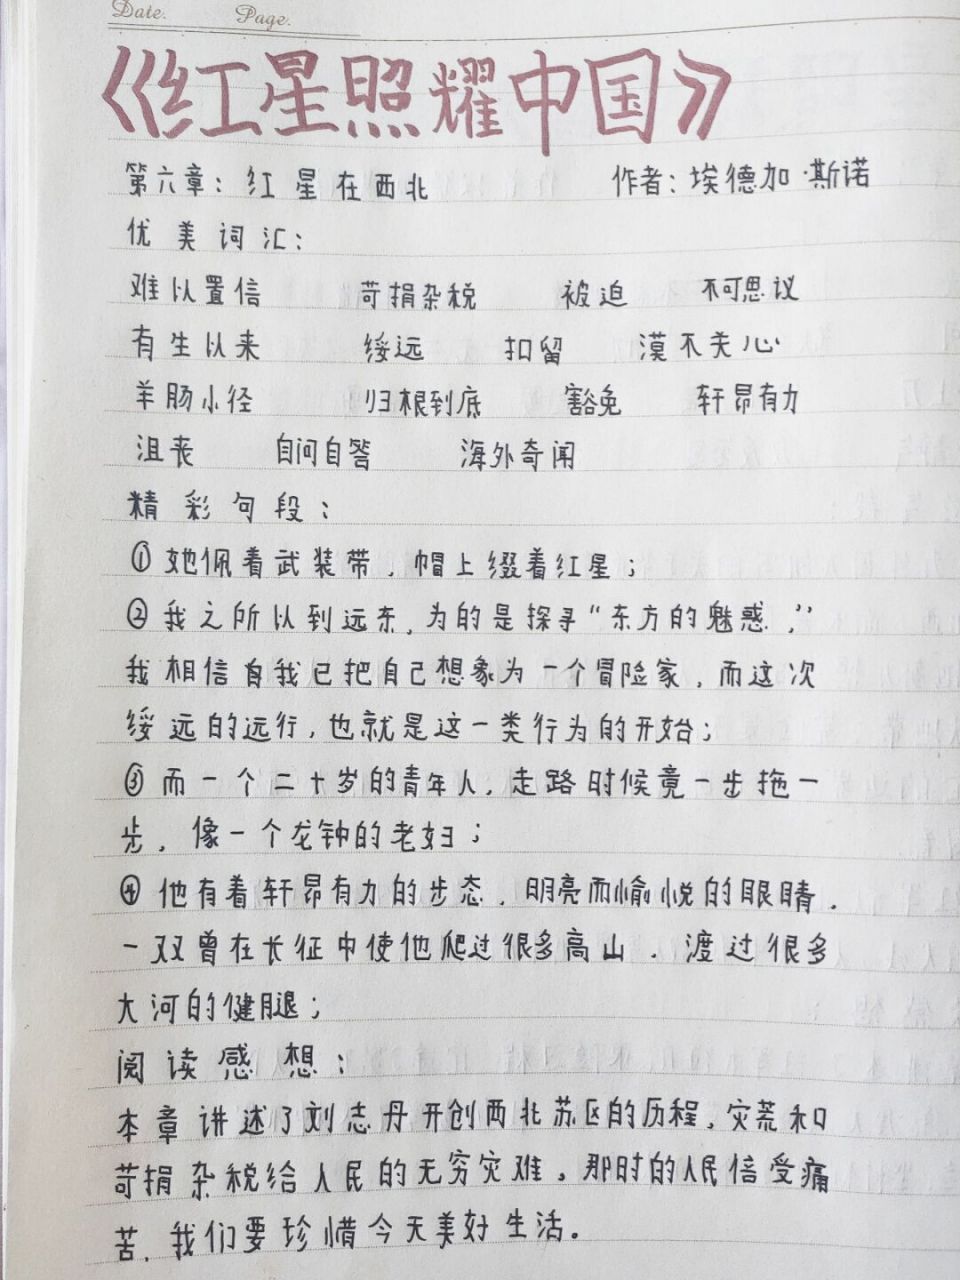 Date. Page.
《红星照耀中国》
第六章：红星在西北 作者：埃德加·斯诺
优美词汇：
难以置信 苛捐杂税 被迫 不可思议
有生以来 绥远 扣留 漠不关心
羊肠小径 归根到底 豁免 轩昂有力
沮丧 自问自答 海外奇闻
精彩句段：
①她佩着武装带，帽上缀着红星；
②我之所以到远东，为的是探寻“东方的魅惑，”
我相信自我已把自己想象为一个冒险家，而这次
绥远的远行，也就是这一类行为的开始；
③而一个二十岁的青年人，走路时候竟一步拖一
步，像一个龙钟的老妇；
④他有着轩昂有力的步态，明亮而愉悦的眼睛，
一双曾在长征中使他爬过很多高山，渡过很多
大河的健腿；
阅读感想：
本章讲述了刘志丹开创西北苏区的历程，灾荒和
苛捐杂税给人民的无穷灾难。那时的人民倍受痛
苦，我们要珍惜今天美好生活。